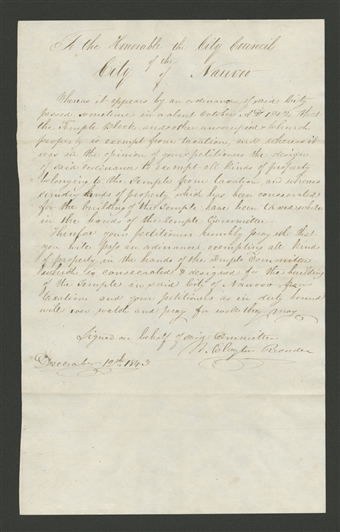 To the Honorable the City Council
of the
City of Nauvoo
Whereas it appears by an ordinance of said City
passed sometime in about October A.D. 1842 that
the Temple Block and other unoccupied church
property is exempt from taxation, and whereas it
was in the opinion of your petitioners the design
of said ordinance to exempt all kinds of property
belonging to the Temple from taxation and whereas
sundry kinds of property which has been consecrated
for the building of the Temple have been taxed while
in the hands of the Temple Committee.
Therefore your petitioners humbly pray that
you will pass an ordinance, exempting all kinds
of property in the hands of the Temple Committee
which is consecrated & designed for the building
of the Temple in said City of Nauvoo from
taxation and your petitioners as in duty bound
will ever watch and pray for
Signed in behalf of said Committee
Clayton Recorder
December 12th 1843